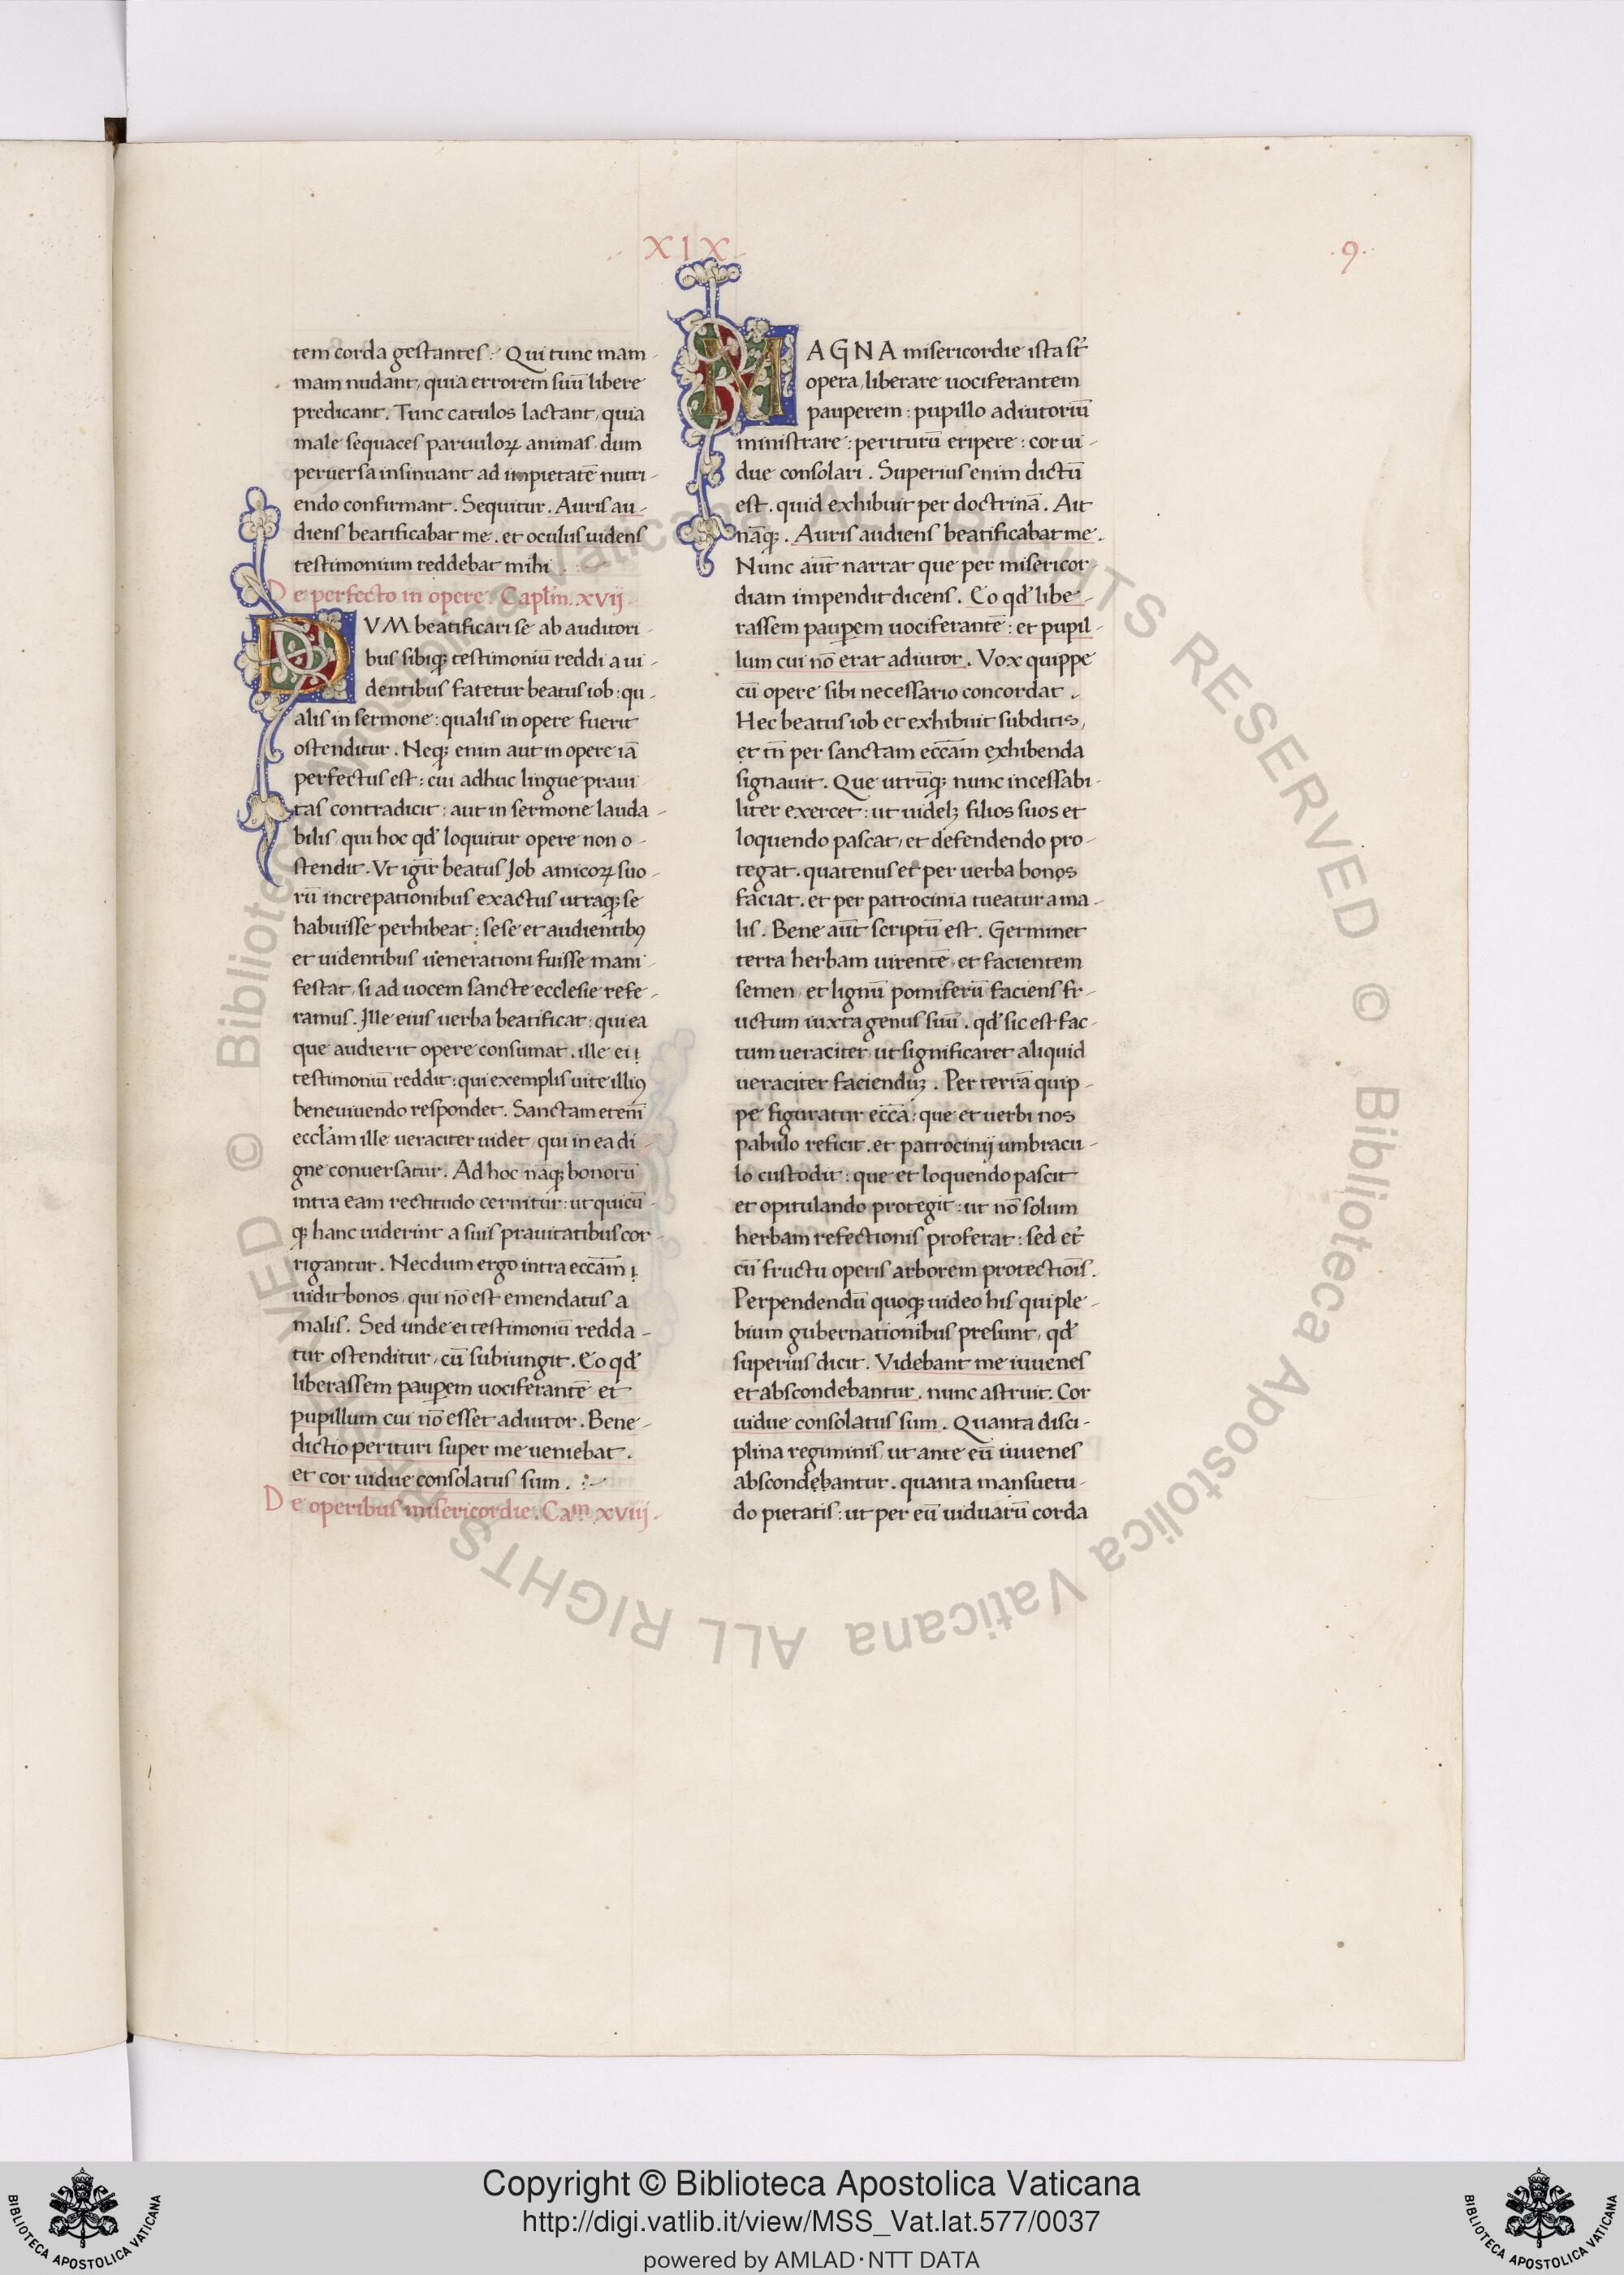 .. XIX ..
.9..
tem corda gestantes. Qui tunc mam-
mam nudant, quia errorem suū libere
predicant. Tunc catulos lactant, quia
male sequaces paruuloꝝ animas, dum
peruersa insinuant ad impietatē nutri-
endo confirmant. Sequitur. Auris au-
diens beatificabat me. et oculus uidens
testimonium reddebat mihi.
De perfecto in opere. Caplm̄. xvij.
DVM beatificari se ab auditori-
bus sibiqꝫ testimoniū reddi a ui-
dentibus fatetur beatus iob: qu-
alis in sermone: qualis in opere fuerit
ostenditur. Neqꝫ enim aut in opere iā
perfectus est: cui adhuc lingue praui-
tas contradicit: aut in sermone lauda-
bilis, qui hoc qđ loquitur opere non o-
stendit. Vt igīr beatus Job amicoꝝ suo-
rū increpationibus exactus utraqꝫ se
habuisse perhibeat: sese et audientibꝰ
et uidentibus uenerationi fuisse mani-
festat, si ad uocem sancte ecclesie refe-
ramus. Ille eius uerba beatificat: qui ea
que audierit opere consumat. ille ei
testimoniū reddit: qui exemplis uite illiꝰ
beneuiuendo respondet. Sanctam etenī
eccl̄am ille ueraciter uidet, qui in ea di-
gne conuersatur. Ad hoc nāqꝫ bonorū
intra eam rectitudo cernitur: ut quicū-
qꝫ hanc uiderint a suis prauitatibus cor-
rigantur. Necdum ergo intra ecc̄am
uidit bonos, qui nō est emendatus a
malis. Sed unde ei testimoniū redda-
tur ostenditur, cū subiungit. Eo qđ
liberassem pauꝑem uociferantē et
pupillum cui nō esset adiutor. Bene-
dictio perituri super me ueniebat.
et cor uidue consolatus sum.
De operibus misericordie. Cam. xviij.
MAGNA misericordie ista st̄
opera, liberare uociferantem
pauperem: pupillo adiutoriū
ministrare: periturū eripere: cor ui-
due consolari. Superius enim dictū
est. quid exhibuit per doctrinā. Ait
nāqꝫ. Auris audiens beatificabat me.
Nunc aūt narrat que per misericor-
diam impendit dicens. Eo qđ libe-
rassem pauꝑem uociferantē: et pupil-
lum cui nō erat adiutor. Vox quippe
cū opere sibi necessario concordat.
Hec beatus iob et exhibuit subditis,
et tn̄ per sanctam ecc̄am exhibenda
signauit. Que utrūqꝫ nunc incessabi-
liter exercet: ut uidelꝫ filios suos et
loquendo pascat, et defendendo pro-
tegat. quatenus et per uerba bonos
faciat. et per patrocinia tueatur a ma-
lis. Bene aūt scriptū est. Germinet
terra herbam uirentē, et facientem
semen, et lignū pomiferū faciens fr-
uctum iuxta genus suū. qđ sic est fac-
tum ueraciter, ut significaret aliquid
ueraciter faciendūꝫ. Per terrā quip-
pe figuratur ecc̄a: que et uerbi nos
pabulo reficit. et patrocinij umbracu-
lo custodit: que et loquendo pascit
et opitulando protegit: ut nō solum
herbam refectionis proferat: sed et
cū fructu operis arborem protectiōis.
Perpendendū quoqꝫ uideo his qui ple-
bium gubernationibus presunt, qđ
superius dicit. Videbant me iuuenes
et abscondebantur. nunc astruit. Cor
uidue consolatus sum. Quanta disci-
plina regiminis, ut ante eū iuuenes
abscondebantur. quanta mansuetu-
do pietatis: ut per eū uiduarū corda
© Biblioteca Apostolica Vaticana ALL RIGHTS RESERVED © Biblioteca Apostolica Vaticana ALL RIGHTS RESERVED
Copyright © Biblioteca Apostolica Vaticana
http://digi.vatlib.it/view/MSS_Vat.lat.577/0037
powered by AMLAD·NTT DATA
BIBLIOTECA APOSTOLICA VATICANA
BIBLIOTECA APOSTOLICA VATICANA